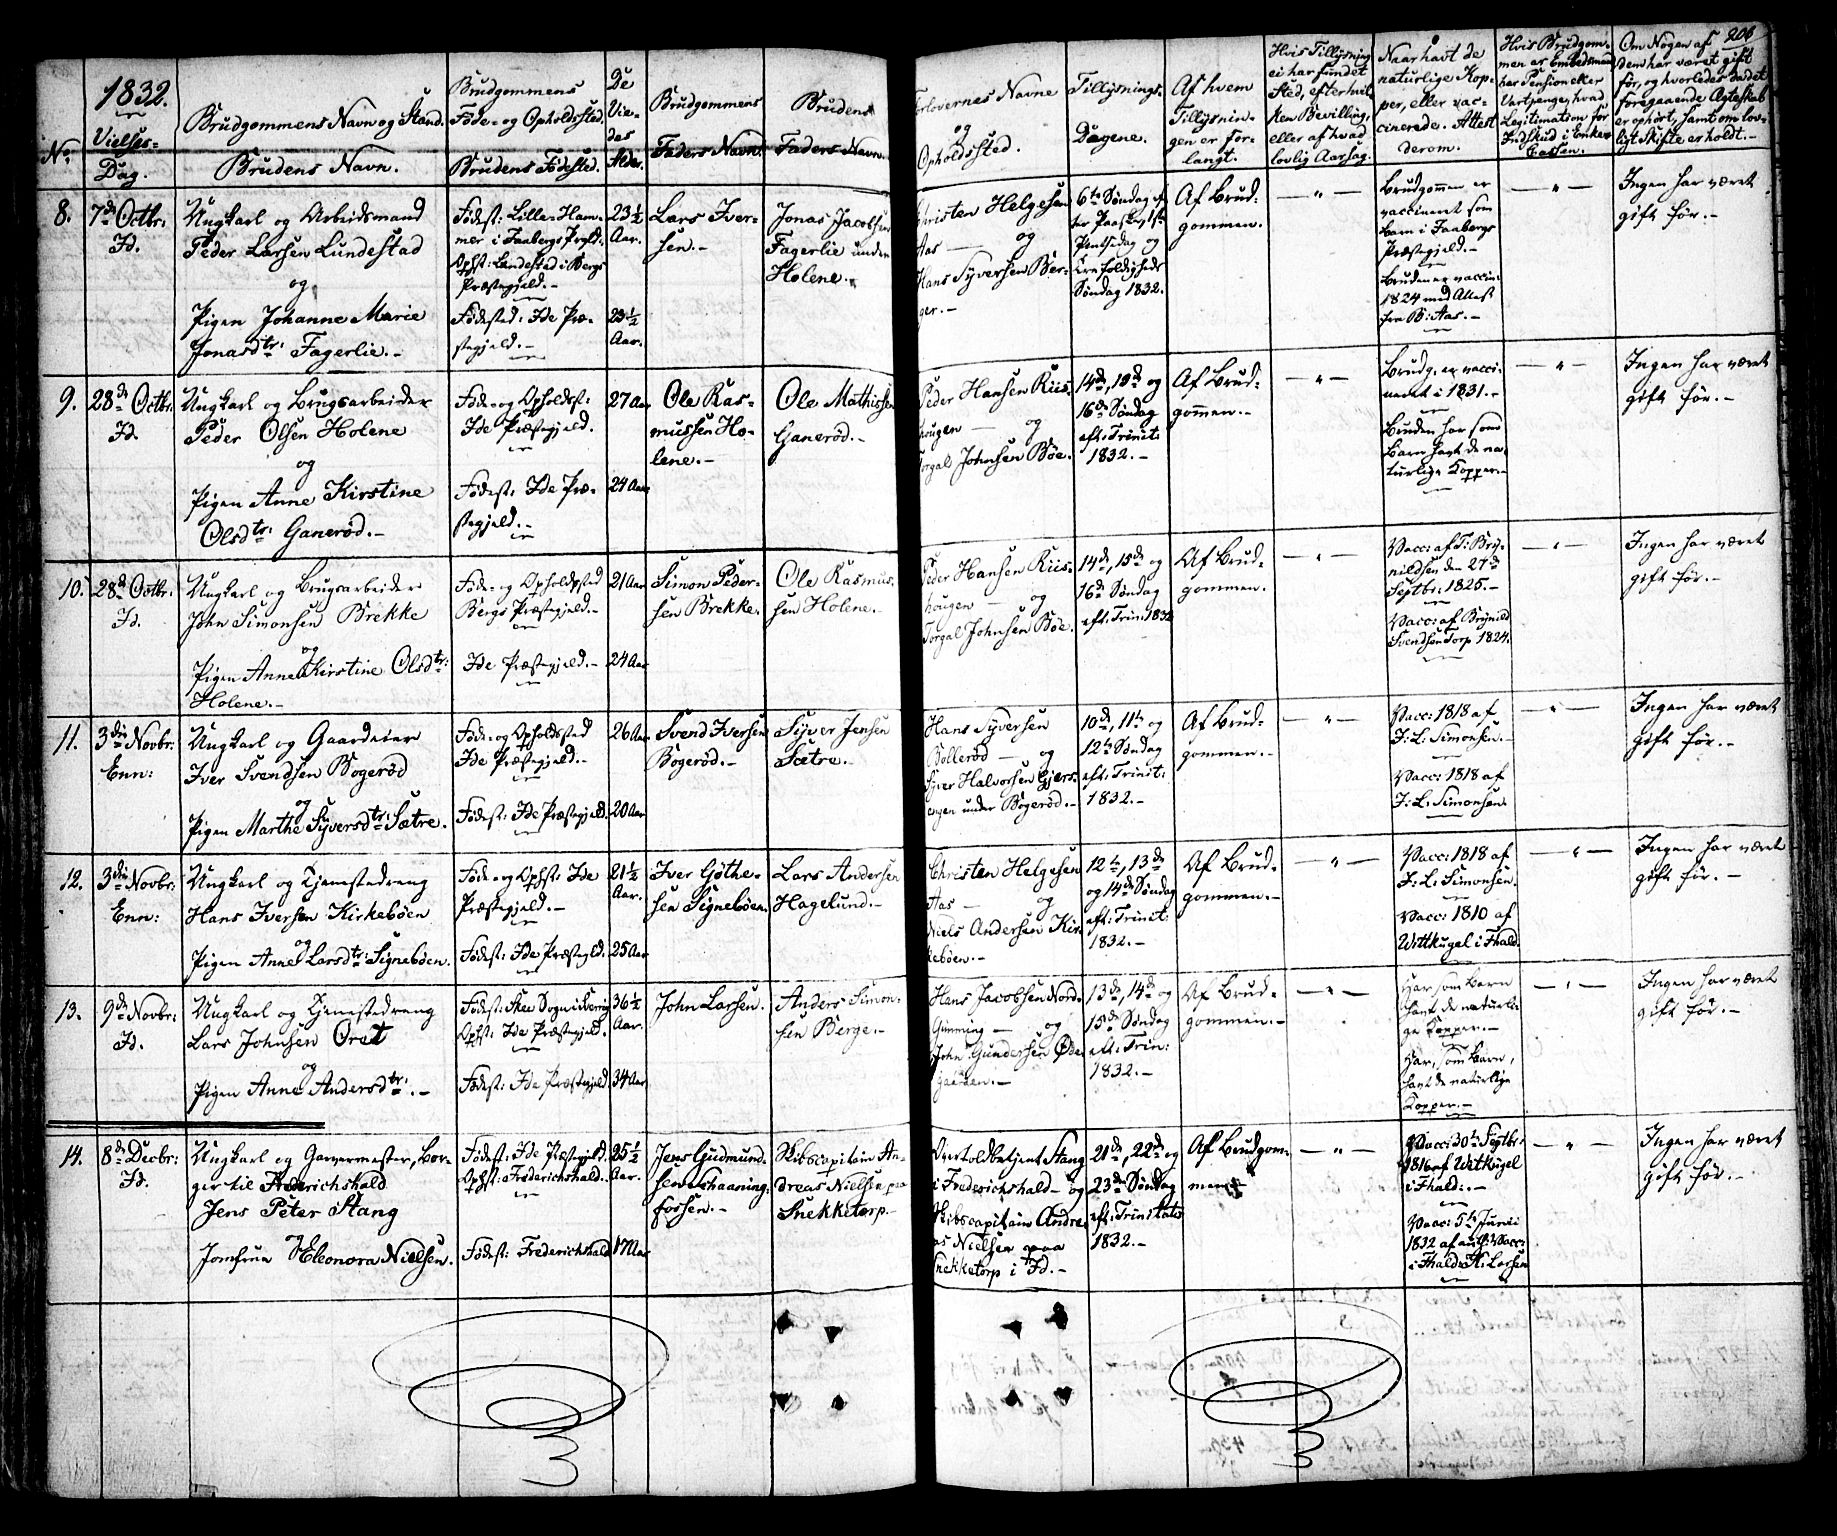 206
1832.
No
Vielses-
Dag.
Brudgommens Navn og Stand.
Brudens Navn.
Brudgommens
Føde- og Opholdssted.
Brudens Fødested.
De
Vie-
des
Alder.
Brudgommens
Faders Navn.
Brudens
Faders Navn.
Forlovernes Navne
og
Opholdssted.
Tillysnings-
Dagene.
Af hvem
Tillysnin-
gen er for-
langt.
Hvis Tillysning
ei har fundet
Sted, efter hvil-
ken Bevilling,
eller af hvad
lovlig Aarsag.
Naar havt de
naturlige Kop-
per, eller vac-
cinerede. Attest
derom.
Hvis Brudgom-
men er Embedsmand
har Pension eller
Vartpenge, hvad
Legitimation for
Indskud i Enke-
Cassen.
Om Nogen af
dem har været gift
før, og hvorledes da det
foregaaende Ægteskab
er ophørt, samt om lov-
ligt Skifte er holdt.-
8.
7de Octbr:
Id.
Ungkarl og Arbeidsmand
Peder Larsen Lundestad
og
Pigen Johanne Marie
Jonasdtr: Fagerlie.-
Fødest: Lille-Ham-
mer i Faabergs Prgld:
Ophst: Lundestad i Bergs
Præstegjeld.-
Fødested: Ide Præ-
stegjeld.-
23½
Aar.
23½
Aar.
Lars Iver-
sen.-
Jonas Jacobsen
Fagerlie under
Holene.-
Christen Helgesen
Aas - og
Hans Syversen Ber-
ger.-
6te Søndag ef-
ter Paaske, 1ste
Pintsedag og
Trefoldigheds
Søndag 1832.
Af Brud-
gommen.
- " -
Brudgommen er
vaccineret som
Barn i Faabergs
Præstegjeld.-
Bruden er vaccin:
1824 med Attest
fra B: Aas.-
- " -
Ingen har været
gift før.-
9.
28de Octbr:
Id.
Ungkarl og Brugsarbeider
Peder Olsen Holene
og
Pigen Anne Kirstine
Olsdtr: Ganerød.-
Føde- og Opholdsst:
Ide Præstegjeld.
Fødest: Ide Præ-
stegjeld.-
27 Aar
24 Aar
Ole Ras-
mussen Ho-
lene.-
Ole Mathissen
Ganerød.-
Peder Hansen Riis-
hougen - og
Torgal Johnsen Bøe.
14de, 15de og
16de Søndag
eft: Trinit:
1832.-
Af Brud-
gommen.-
- " -
Brudg. er vacci-
neret i 1831.-
Bruden har som
Barn havt de na-
turlige Kopper.-
- " -
Ingen har været
gift før.-
10.
28de Octbr:
Id.
Ungkarl og Brugsarbeider
John Simonsen Brekke
og
Pigen Anne Kirstine Olsdtr:
Holene.-
Føde- og Opholdssted
Bergs Præstegjeld.-
Ide Præstegjeld.-
21 Aar
24 Aar
Simon Peder-
sen Brekke.
Ole Rasmus-
sen Holene.-
Peder Hansen Riis-
hougen - og
Torgal Johnsen Bøe.
14de, 15de og
16de Søndag
eft: Trin: 1832
Af Brud-
gommen.
- " -
Vacc: af T: Bry-
nildsen den 27de
Septbr: 1825.-
Vacc: af Brynild
Svendsen Torp 1824.
- " -
Ingen har været
gift før.-
11.
3die Novbr:
Enn:
Ungkarl og Gaardeier
Iver Svendsen Bogerød
og
Pigen Marthe Syversdtr: Sætre.
Føde- og Opholdssted
Ide Præstegjeld.-
Fødest: Ide Præstegjeld.
26 Aar
20 Aar
Svend Iversen
Bogerød.-
Syver Jensen
Sætre.-
Hans Syversen
Bollerød - og
Syver Halvorsen Gjers-
engen under Bøgerød.-
10de, 11te og
12te Søndag
eft: Trinit:
1832.-
Af Brud-
gommen.-
- " -
Vacc: 1818 af
J: L: Simonsen.-
Vacc: 1818 af
J: L: Simonsen.
- " -
Ingen har været
gift før.-
12.
3die Novbr:
Enn:
Ungkarl og Tjenestedreng
Hans Iversen Kirkebøen
og
Pigen Anne Larsdtr: Signebøen.
Føde- og Ophst: Ide
Præstegjeld.-
Fødest: Ide Præstegld:
21½
Aar.
25 Aar
Iver Gøthe-
sen Signebøen.
Lars Andersen
Hagelund.-
Christen Helgesen
Aas - og
Niels Andersen Kir-
kebøen.-
12te, 13de
og 14de Søndag
eft: Trinit:
1832.-
Af Brud-
gommen.-
- " -
Vacc: 1818 af
J: L: Simonsen.
Vacc: 1810 af
Wittkugel i Fhald.
- " -
Ingen har været
gift før.-
13.
9de Novbr:
Id.
Ungkarl og Tjenestedreng
Lars Johnsen Oræt
og
Pigen Anne Andersdtr:.-
Fødest: Skee Sogn i Sverrig
Ophst: Ide Præstegjeld.
Fødest: Ide Præstegjeld.
36½
Aar.
34 Aar
John Larsen.
Anders Simon-
sen Berge.-
Hans Jacobsen Nord-
Gimming - og
John Gundersen Øde-
gaarden.-
13de, 14de og
15de Søndag
eft: Trin:
1832.-
Af Brud-
gommen.-
- " -
Har som Barn
havt de naturli-
ge Kopper.-
Har, som Barn,
havt de naturlige
Kopper.-
- " -
Ingen har været
gift før.-
14.
8de Decbr:
Id.
Ungkarl og Garvermester, Bor-
ger til Frederichshald
Jens Peter Stang
og
Jomfrue Eleonora Nielsen.
Fødest: Ide Præstegjeld.
Ophst: Frederichshald.
Fødest: Frederichshald
25½
Aar.
17 Aar
Jens Gudmund-
sen Skaaning-
fossen.-
Skibscapitain An-
dreas Nielsen paa
Snekketorp.-
Overtoldbetjent Stang
i Frederichshald - og
Skibscapitain Andre-
as Nielsen paa
Snekketorp i Id.-
21de, 22de og
23de Søndag
eft: Trinitatis
1832.-
Af Brudgom-
men.-
- " -
Vacc: 30te Septbr:
1816 af Witkugel
i Fhald:.-
Vacc: 5te Junii
1832 af
i Fhald: H: Larsen
- " -
Ingen har været
gift før.-